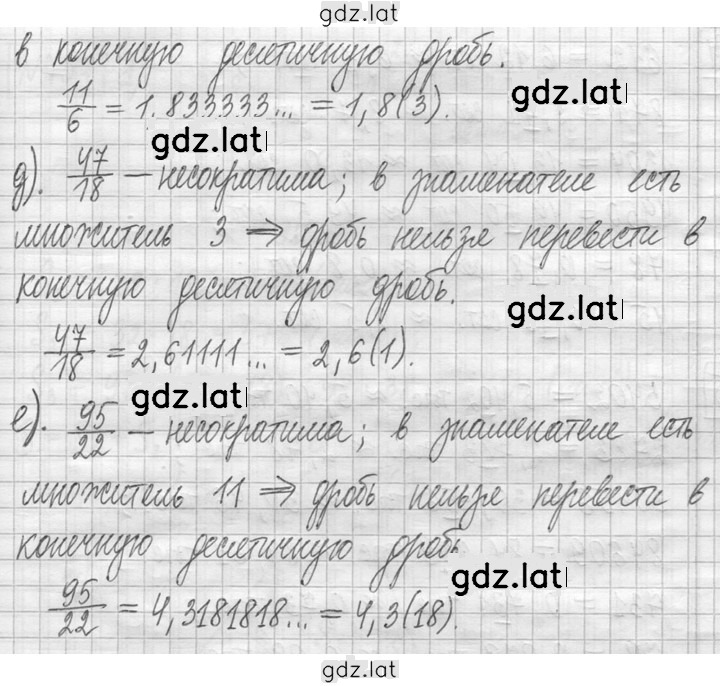 gdz.lat
в конечную десятичную дробь.
gdz.lat
11/6 = 1.833333... = 1,8(3).
gdz.lat
д). 47/18 – несократима; в знаменателе есть
множитель 3 ⇒ дробь нельзя перевести в
конечную десятичную дробь.
gdz.lat
47/18 = 2,61111... = 2,6(1).
gdz.lat
е). 95/22 – несократима; в знаменателе есть
множитель 11 ⇒ дробь нельзя перевести в
конечную десятичную дробь
gdz.lat
95/22 = 4,3181818... = 4,3(18).
gdz.lat